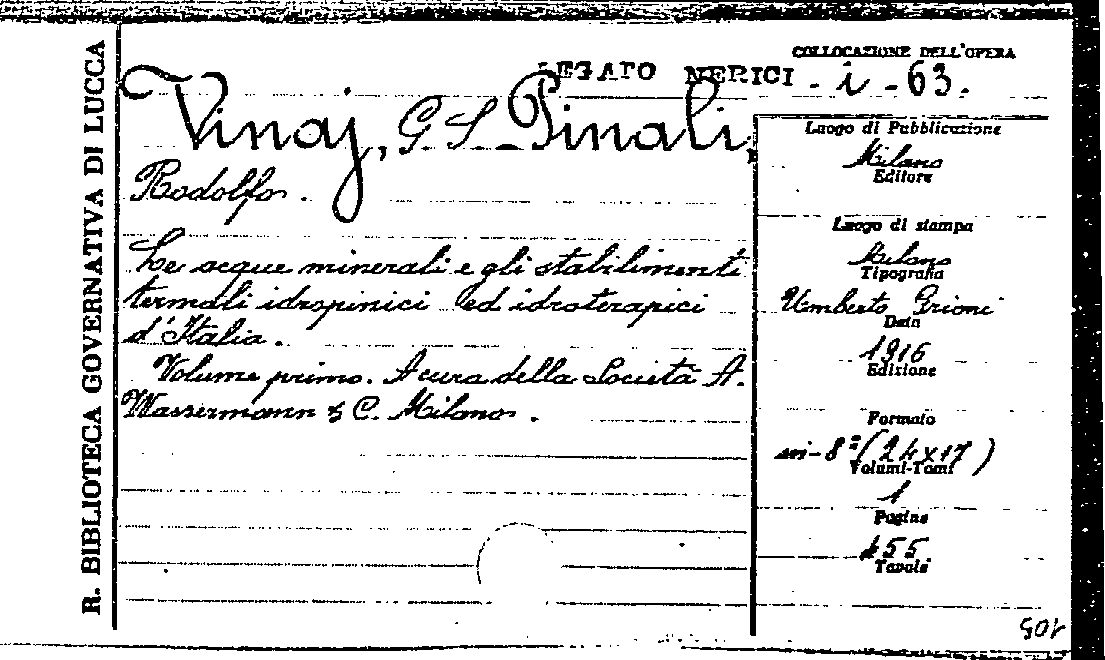 R. BIBLIOTECA GOVERNATIVA DI LUCCA
COLLOCAZIONE DELL'OPERA
LEGATO NERICI - i - 63.
Vinaj, G S - Pinali,
Rodolfo.
Le acque minerali e gli stabilimenti
termali idropinici ed idroterapici
d'Italia.
Volume primo. A cura della Società A.
Wassermann & C. Milano.
Luogo di Pubblicazione
Milano
Editore
Luogo di stampa
Milano
Tipografia
Umberto Grioni
Data
1916
Edizione
Formato
in-8º (24x17)
Volumi-Tomi
1
Pagine
455
Tavole
105